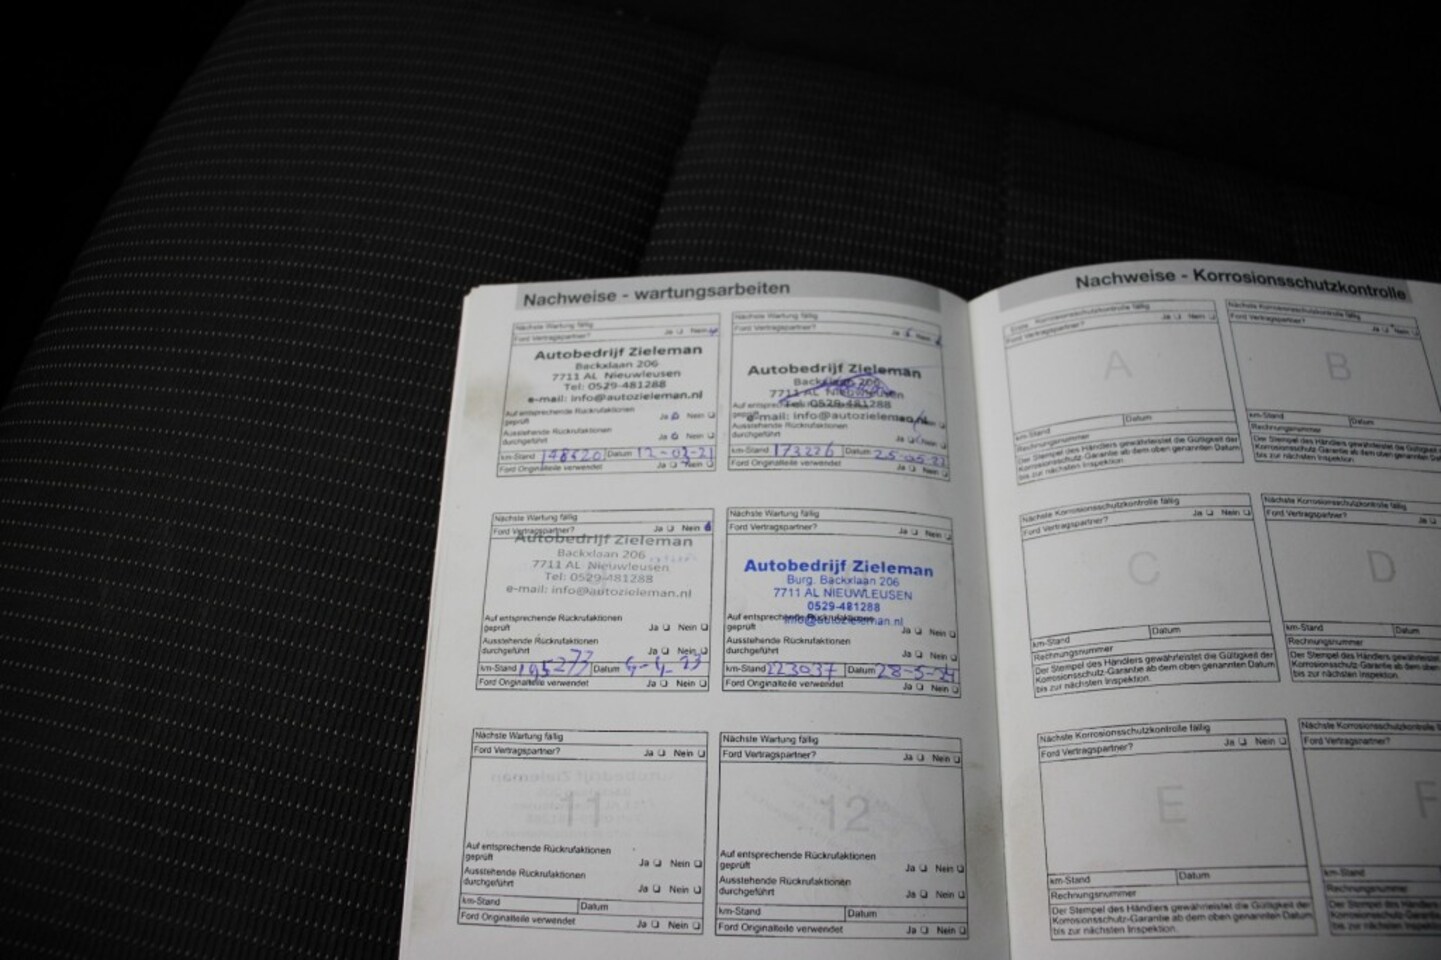 Nachweise - wartungsarbeiten
Nächste Wartung fällig
Ford Vertragspartner? Ja Nein
Autobedrijf Zieleman
Backxlaan 206
7711 AL Nieuwleusen
Tel: 0529-481288
e-mail: info@autozieleman.nl
Auf entsprechende Rückrufaktionen
geprüft Ja Nein
Ausstehende Rückrufaktionen
durchgeführt Ja Nein
km-Stand 148620 Datum 12-03-21
Ford Originalteile verwendet Ja Nein
Nächste Wartung fällig
Ford Vertragspartner? Ja Nein
Autobedrijf Zieleman
Backxlaan 206
7711 AL Nieuwleusen
Tel: 0529-481288
Auf entsprechende Rückrufaktionen
geprüft
e-mail: info@autozieleman.nl
Ausstehende Rückrufaktionen
durchgeführt Ja Nein
km-Stand 173226 Datum 25-05-
Ford Originalteile verwendet Ja Nein
Nächste Wartung fällig
Ford Vertragspartner? Ja Nein
Autobedrijf Zieleman
Backxlaan 206
7711 AL Nieuwleusen
Tel: 0529-481288
e-mail: info@autozieleman.nl
Auf entsprechende Rückrufaktionen
geprüft Ja Nein
Ausstehende Rückrufaktionen
durchgeführt Ja Nein
km-Stand 195277 Datum
Ford Originalteile verwendet Ja Nein
Nächste Wartung fällig
Ford Vertragspartner? Ja Nein
Autobedrijf Zieleman
Burg. Backxlaan 206
7711 AL NIEUWLEUSEN
0529-481288
info@autozieleman.nl
Auf entsprechende Rückrufaktionen
geprüft Ja Nein
Ausstehende Rückrufaktionen
durchgeführt Ja Nein
km-Stand 223037 Datum 28-5-24
Ford Originalteile verwendet Ja Nein
Nächste Wartung fällig
Ford Vertragspartner? Ja Nein
11
Auf entsprechende Rückrufaktionen
geprüft Ja Nein
Ausstehende Rückrufaktionen
durchgeführt Ja Nein
km-Stand Datum
Ford Originalteile verwendet Ja Nein
Nächste Wartung fällig
Ford Vertragspartner? Ja Nein
12
Auf entsprechende Rückrufaktionen
geprüft Ja Nein
Ausstehende Rückrufaktionen
durchgeführt Ja Nein
km-Stand Datum
Ford Originalteile verwendet Ja Nein
Nachweise - Korrosionsschutzkontrolle
Erste Korrosionsschutzkontrolle fällig
Ford Vertragspartner? Ja Nein
A
km-Stand Datum
Rechnungsnummer
Der Stempel des Händlers gewährleistet die Gültigkeit der
Korrosionsschutz-Garantie ab dem oben genannten Datum
bis zur nächsten Inspektion.
Nächste Korrosionsschutzkontrolle fällig
Ford Vertragspartner? Ja Nein
B
km-Stand Datum
Rechnungsnummer
Der Stempel des Händlers gewährleistet die Gültigkeit
Korrosionsschutz-Garantie ab dem oben genannten
bis zur nächsten Inspektion.
Nächste Korrosionsschutzkontrolle fällig
Ford Vertragspartner? Ja Nein
C
km-Stand Datum
Rechnungsnummer
Der Stempel des Händlers gewährleistet die Gültigkeit der
Korrosionsschutz-Garantie ab dem oben genannten Datum
bis zur nächsten Inspektion.
Nächste Korrosionsschutzkontrolle fällig
Ford Vertragspartner? Ja
D
km-Stand Datum
Rechnungsnummer
Der Stempel des Händlers gewährleistet die
Korrosionsschutz-Garantie ab dem oben
bis zur nächsten Inspektion.
Nächste Korrosionsschutzkontrolle fällig
Ford Vertragspartner? Ja Nein
E
km-Stand Datum
Rechnungsnummer
Der Stempel des Händlers gewährleistet die Gültigkeit der
Korrosionsschutz-Garantie ab dem oben genannten Datum
bis zur nächsten Inspektion.
Nächste Korrosionsschutzkontrolle
Ford Vertragspartner?
F
km-Stand
Rechnungsnummer
Der Stempel des Händlers
Korrosionsschutz-Garantie
bis zur nächsten Inspektion.